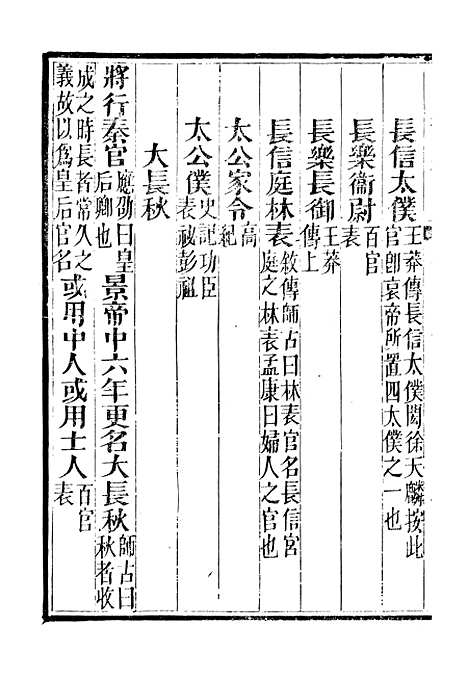 長信太僕王莽傳長信太僕閎徐天麟按此官卽哀帝所置四太僕之一也
長樂衞尉百官表
長樂長御王莽傳上
長信庭林表敘傳師古曰林表官名長信宮庭之林表孟康曰婦人之官也
太公家令高紀
太公僕史記功臣表祕彭祖
大長秋
將行秦官應劭曰皇后卿也景帝中六年更名大長秋師古曰秋者收
成之時長者常久之義故以爲皇后官名或用中人或用士人百官表